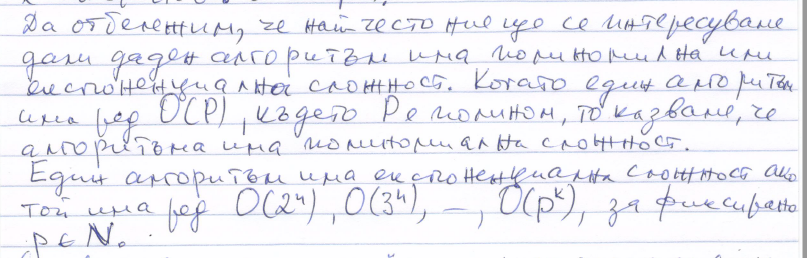 Да отбележим, че най-често ние ще се интересуваме
дали даден алгоритъм има полиномилна или
експоненциална сложност. Когато един алгоритъм
има ред O(P), където P е полином, то казваме, че
алгоритъма има полиномиална сложност.
Един алгоритъм има експоненциална сложност ако
той има ред O(2ⁿ), O(3ⁿ), –, O(pᵏ), за фиксирано
p ∈ N.